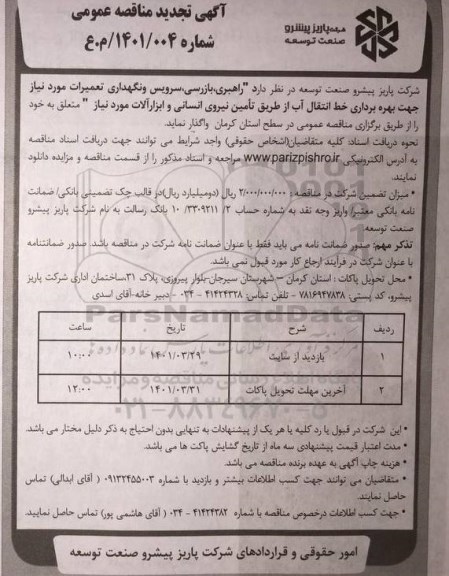 آگهی تجدید مناقصه عمومی
شماره ۱۴۰۱/۰۰۴/م.ع
مجمع پاریز پیشرو
صنعت توسعه
شرکت پاریز پیشرو صنعت توسعه در نظر دارد "راهبری،بازرسی،سرویس ونگهداری تعمیرات مورد نیاز
جهت بهره برداری خط انتقال آب از طریق تأمین نیروی انسانی و ابزارآلات مورد نیاز " متعلق به خود
را از طریق برگزاری مناقصه عمومی در سطح استان کرمان واگذار نماید.
نحوه دریافت اسناد: کلیه متقاضیان(اشخاص حقوقی) واجد شرایط می توانند جهت دریافت اسناد مناقصه
به آدرس الکترونیکی www.parizpishro.ir مراجعه و اسناد مذکور را از قسمت مناقصه و مزایده دانلود
نمایند.
• میزان تضمین شرکت در مناقصه : ۲/۰۰۰/۰۰۰/۰۰۰ ریال (دومیلیارد ریال)در قالب چک تضمینی بانکی/ ضمانت
نامه بانکی معتبر/ واریز وجه نقد به شماره حساب ۲/ ۳۳۰۹۲۱۱/ ۱۰ بانک رسالت به نام شرکت پاریز پیشرو
صنعت توسعه.
تذکر مهم: صدور ضمانت نامه می باید فقط با عنوان ضمانت نامه شرکت در مناقصه باشد. صدور ضمانتنامه
با عنوان شرکت در فرآیند ارجاع کار مورد قبول نمی باشد.
• محل تحویل پاکات : استان کرمان – شهرستان سیرجان-بلوار پیروزی، پلاک ۳۱ساختمان اداری شرکت پاریز
پیشرو، کد پستی: ۷۸۱۶۹۴۷۸۳۸ - تلفن تماس: ۴۱۴۲۴۳۲۸ - ۰۳۴ - دبیر خانه-آقای اسدی
ردیف شرح تاریخ ساعت
۱ بازدید از سایت ۱۴۰۱/۰۳/۲۹ ۱۰:۰۰
۲ آخرین مهلت تحویل پاکات ۱۴۰۱/۰۳/۳۱ ۱۲:۰۰
ParsNamadData
۰۲۱-۸۸۳۴۹۶۷۰-۵
• این شرکت در قبول یا رد کلیه یا هر یک از پیشنهادات به تنهایی بدون احتیاج به ذکر دلیل مختار می باشد.
• مدت اعتبار قیمت پیشنهادی سه ماه از تاریخ گشایش پاکت ها می باشد.
• هزینه چاپ آگهی به عهده برنده مناقصه می باشد.
• متقاضیان می توانند جهت کسب اطلاعات بیشتر و بازدید با شماره ۰۹۱۳۲۴۵۵۰۰۳ ( آقای ابدالی) تماس
حاصل نمایند.
• جهت کسب اطلاعات درخصوص مناقصه با شماره ۴۱۴۲۴۳۸۲ - ۰۳۴ ( آقای هاشمی پور) تماس حاصل نمایید.
امور حقوقی و قراردادهای شرکت پاریز پیشرو صنعت توسعه